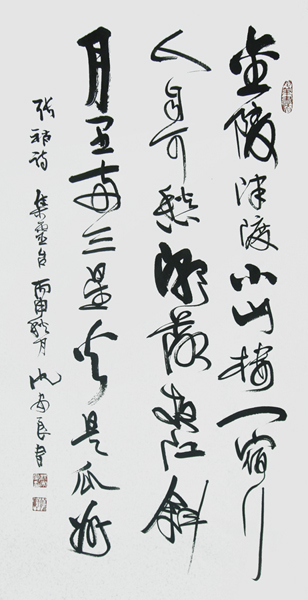 金陵津渡小山楼一宿行
人自可愁潮落夜江斜
月里两三星火是瓜洲
张祜诗 集灵台 丙申 月 良书